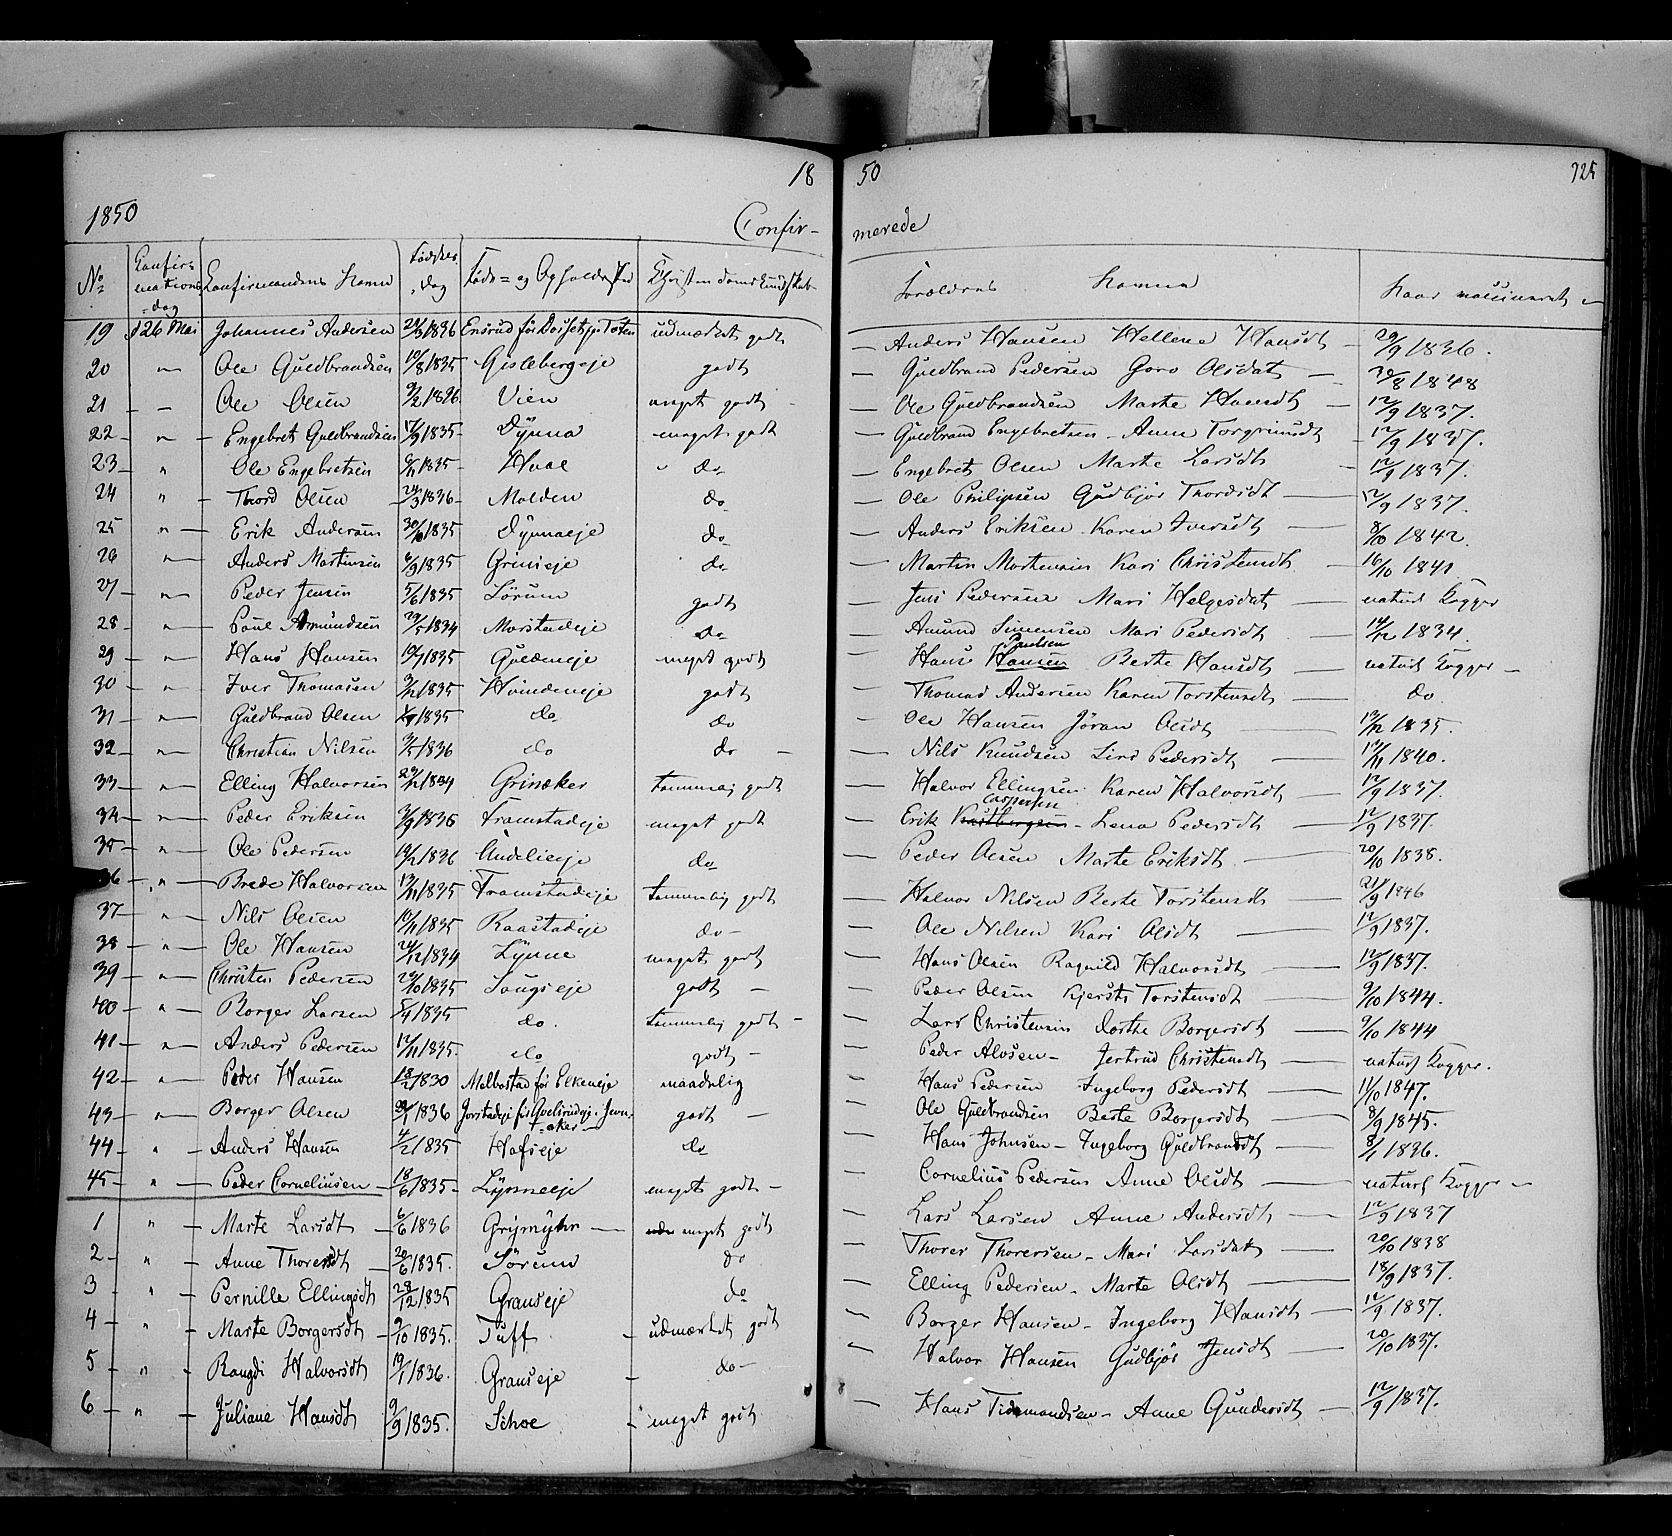 18 50 725
1850 Confir- merede
No Confirmations dag Confirmandens Navn Fødsels dag Føde= og Opholds Sted Christendoms Kundskab Forældres Navne Naar vaccineret
19 d 26 Mai Johannes Andersen 1836 Ensrud før Dosset Toten udmærket godt — Anders Hansen Hellene Hansdt — 29/9 1836.
20 " Ole Guldbrandsen 10/8 1835 Gislebergeje godt — Guldbrand Pedersen Goro Olsdat — 1848
21 " Ole Olsen Vien meget godt — Ole Guldbrandsen Marte Hansdt — 12/9 1837.
22 — " — Engebret Guldbrandsen 17/9 1835 — Dynna meget godt — Guldbrand Engebretsen — Anne Torgrimsdt — 12/9 1837.
23 — " Ole Engebretsen 1835 — Hval " do — Engebret Olsen Marte Larsdt — 12/9 1837.
24 " — Thord Olsen 24/3 1836 — Molden do — Ole Philipsen Gudbjør Thordsdt — 12/9 1837.
25 " — Erik Andersen 1835 Dynnaeje do — Anders Eriksen Karen Iversdt — 8/10 1842.
26 " — Anders Mortensen 6/9 1835 Grinieje do — Martin Mortensen Kari Christensdt — 16/10 1841
27 " — Peder Jensen 5/6 1835 Sørum godt — Jens Pedersen Mari Helgesdat — naturl Kopper
28 " — Poul Amundsen 29/5 1834 Morstadeje do — Amund Simensen Mari Pedersdt — 14/12 1834.
29 " — Hans Hansen 1835 Guldeneje meget godt — Hans Hansen Poulsen Berthe Hansdt — naturl Kopper —
30 " — Iver Thomasen 1835 Hvindeneje godt — Thomas Andersen Karen Torstensdt — do
31 " — Guldbrand Olsen 1835 do do — Ole Hansen Jøran Olsdt — 13/12 1835.
32 " — Christian Nilsen 3/5 1836 do do — — Nils Knudsen Siri Pedersdt — 1840.
33 " — Elling Halvorsen 1834 Grinaker temmelig godt — Halvor Ellingsen Karen Halvorsdt — 12/9 1837.
34 " — Peder Eriksen 1835 Framstadeje meget godt — Erik Caspersen — Lena Pedersdt — 12/9 1837.
35 " — Ole Pedersen 1836 do — Peder Olsen Marte Eriksdt — 20/10 1838.
36 " — Brede Halvorsen 13/11 1835 Framstadeje temmelig godt — Halvor Nilsen Berte Torstensdt — 21/9 1846
37 " — Nils Olsen 10/11 1835 Raastadeje do — — Ole Nilsen Kari Olsdt — 12/9 1837.
38 " — Ole Hansen 1834 Lynne meget godt — Hans Olsen Ragnild Halvorsdt — 12/9 1837.
39 " — Christen Pedersen 1835 Sougseje godt — — Peder Olsen Kjersti Torstensdt — 9/10 1844.
40 " — Borger Larsen 1835 do. temmelig godt — — Lars Christensen Dorthe Borgersdt — 9/10 1844
41 " — Anders Pedersen 1835. do godt — — Peder Alvsen — Jertrud Christensdt — naturl Kopper.
42 " — Peder Hansen 1830 Melbostad før Elkeneje maadelig — Hans Pedersen Ingeborg Pedersdt — 11/10 1847.
43 " — Borger Olsen 1836 Jorstadeje før Jevnaker — godt — — Ole Guldbrandsen Berte Borgersdt — 8/9 1845.
44 " — Anders Hansen 1835 Hofseje do — Hans Johnsen — Ingeborg Guldbrandsdt — 8/1 1836.
45 " — Peder Corneliusen — 18/6 1835 — Lynneeje meget godt — — Cornelius Pedersen Anne Olsdt — naturl Kopper —
1 " — Marte Larsdt — 6/6 1836 Grymyhr — meget godt — Lars Larsen Anne Andersdt — 12/9 1837
2 — " — Anne Thoresdt — 20/6 1835. Sørum do — Thorer Thorersen — Mari Larsdat — 20/10 1838
3 " — Pernille Ellingsdt 28/12 1835 Granseje do — Elling Pedersen — Marte Olsdt — 18/9 1837.
4 — " — Marte Borgersdt — 9/10 1835. Tuff — udmærket godt — Borger Hansen — Ingeborg Hansdt — 12/9 1837.
5 — " — Rangdi Halvorsdt 19/1 1836. Granseje — do — — Halvor Hansen Gudbjør Jensdt — 20/10 1837.
6 — " — Juliane Hansdt 9/9 1835. Schoe — meget godt — Hans Tidemandsen — Anne Gundersdt — 12/9 1837.